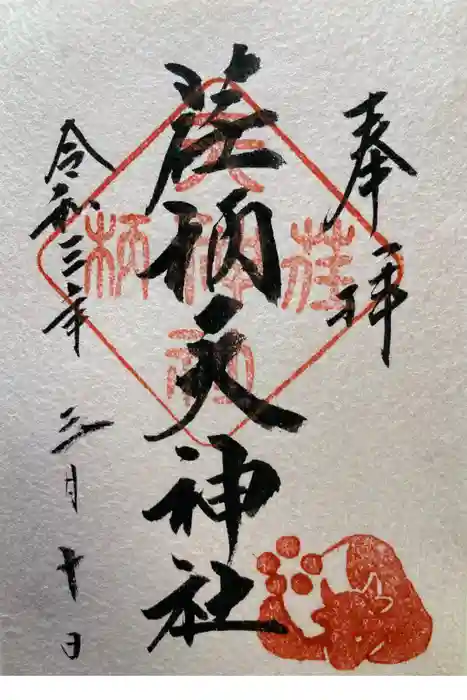 奉拝
荏柄天神社
令和三年
三月十日
荏柄天神社